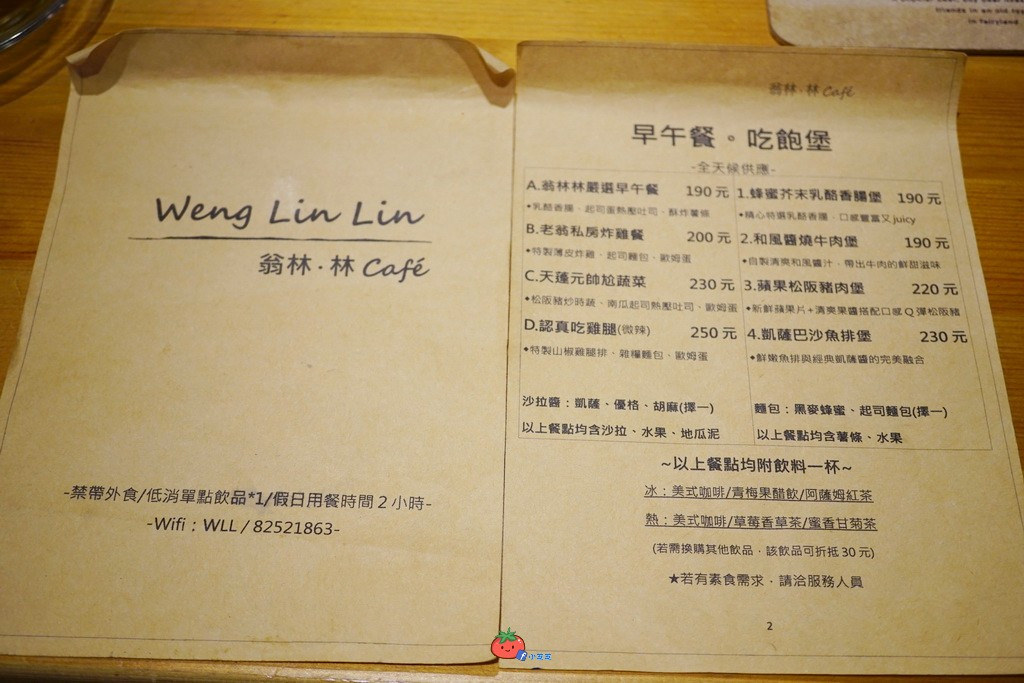 friends in an old
in fairyland
Weng Lin Lin
翁林·林 Café
-禁帶外食/低消單點飲品*1/假日用餐時間 2 小時-
-Wifi：WLL / 82521863-
翁林·林 Café
早午餐。吃飽堡
-全天候供應-
A.翁林林嚴選早午餐 190 元
◆乳酪香腸、起司蛋熱壓吐司、酥炸薯條
B.老翁私房炸雞餐 200 元
◆特製薄皮炸雞、起司麵包、歐姆蛋
C.天蓬元帥尬蔬菜 230 元
◆松阪豬炒時蔬、南瓜起司熱壓吐司、歐姆蛋
D.認真吃雞腿(微辣) 250 元
◆特製山椒雞腿排、雜糧麵包、歐姆蛋
沙拉醬：凱薩、優格、胡麻(擇一)
以上餐點均含沙拉、水果、地瓜泥
1.蜂蜜芥末乳酪香腸堡 190 元
◆精心特選乳酪香腸，口感豐富又 juicy
2.和風醬燒牛肉堡 190 元
◆自製清爽和風醬汁，帶出牛肉的鮮甜滋味
3.蘋果松阪豬肉堡 220 元
◆新鮮蘋果片+清爽果醬搭配口感 Q 彈松阪豬
4.凱薩巴沙魚排堡 230 元
◆鮮嫩魚排與經典凱薩醬的完美融合
麵包：黑麥蜂蜜、起司麵包(擇一)
以上餐點均含薯條、水果
~以上餐點均附飲料一杯~
冰：美式咖啡/青梅果醋飲/阿薩姆紅茶
熱：美式咖啡/草莓香草茶/蜜香甘菊茶
(若需換購其他飲品，該飲品可折抵 30 元)
★若有素食需求，請洽服務人員
2
小芝芝